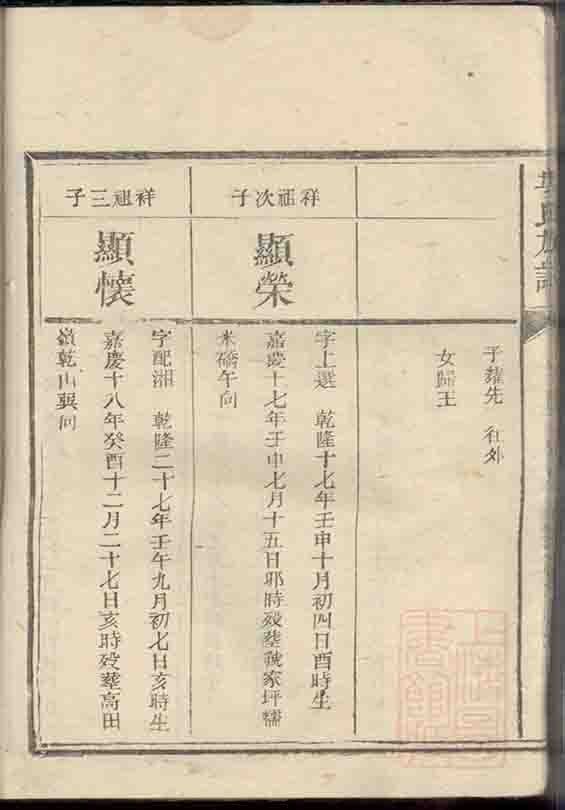 氏族譜
子蕤先 往外
女歸王
祥祖次子
顯榮
字上選 乾隆十七年壬申十月初四日酉時生
嘉慶十七年壬申七月十五日卯時歿塟虢家坪糯
米礄午向
祥祖三子
顯懷
字配湘 乾隆二十七年壬午九月初七日亥時生
嘉慶十八年癸酉十二月二十七日亥時歿塟高田
嶺乾山巽向